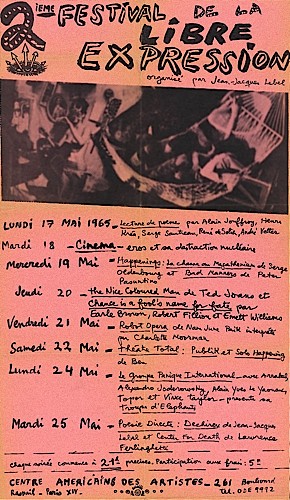 2 ième FESTIVAL DE LA
LIBRE
EXPRESSION
organisé par Jean-Jacques Lebel
LUNDI 17 MAI 1965 - Lecture de poème par Alain Jouffroy, Henri
Kréa, Serge Sautreau, René de Solier, André Velter
Mardi 18 - Cinema - eros et sa destruction nucléaire
Mercredi 19 Mai - Happenings: de Serge
Oldenbourg et Bad Manners de Peter
Jeudi 20 - the Nice Coloured Man de Ted Joans et
Chance is a fool's name for fate par
Earle Brown, Robert Filiou et Emett Williams
Vendredi 21 Mai - Robot Opera de Nam June Paik interprété
par Charlotte Moorman
Samedi 22 Mai - Théâtre Total: Publik et Solo Happening
de Ben.
Lundi 24 Mai - Le groupe Panique International - avec Arrabal,
Alejandro Jodorowsky, Alain Yves Le Yaouanc,
Topor et Vince Taylor - présente sa
Troupe d'Elephants
Mardi 25 Mai - Poésie Directe: Déchirex de Jean-Jacques
Lebel et Center for Death de Lawrence
Ferlinghetti
chaque soirée commence à 21h précises. Participation aux frais: 5F
CENTRE AMERICAINS DES ARTISTES - 261 Boulevard
Raspail - Paris XIV. Tel. ODE 9992